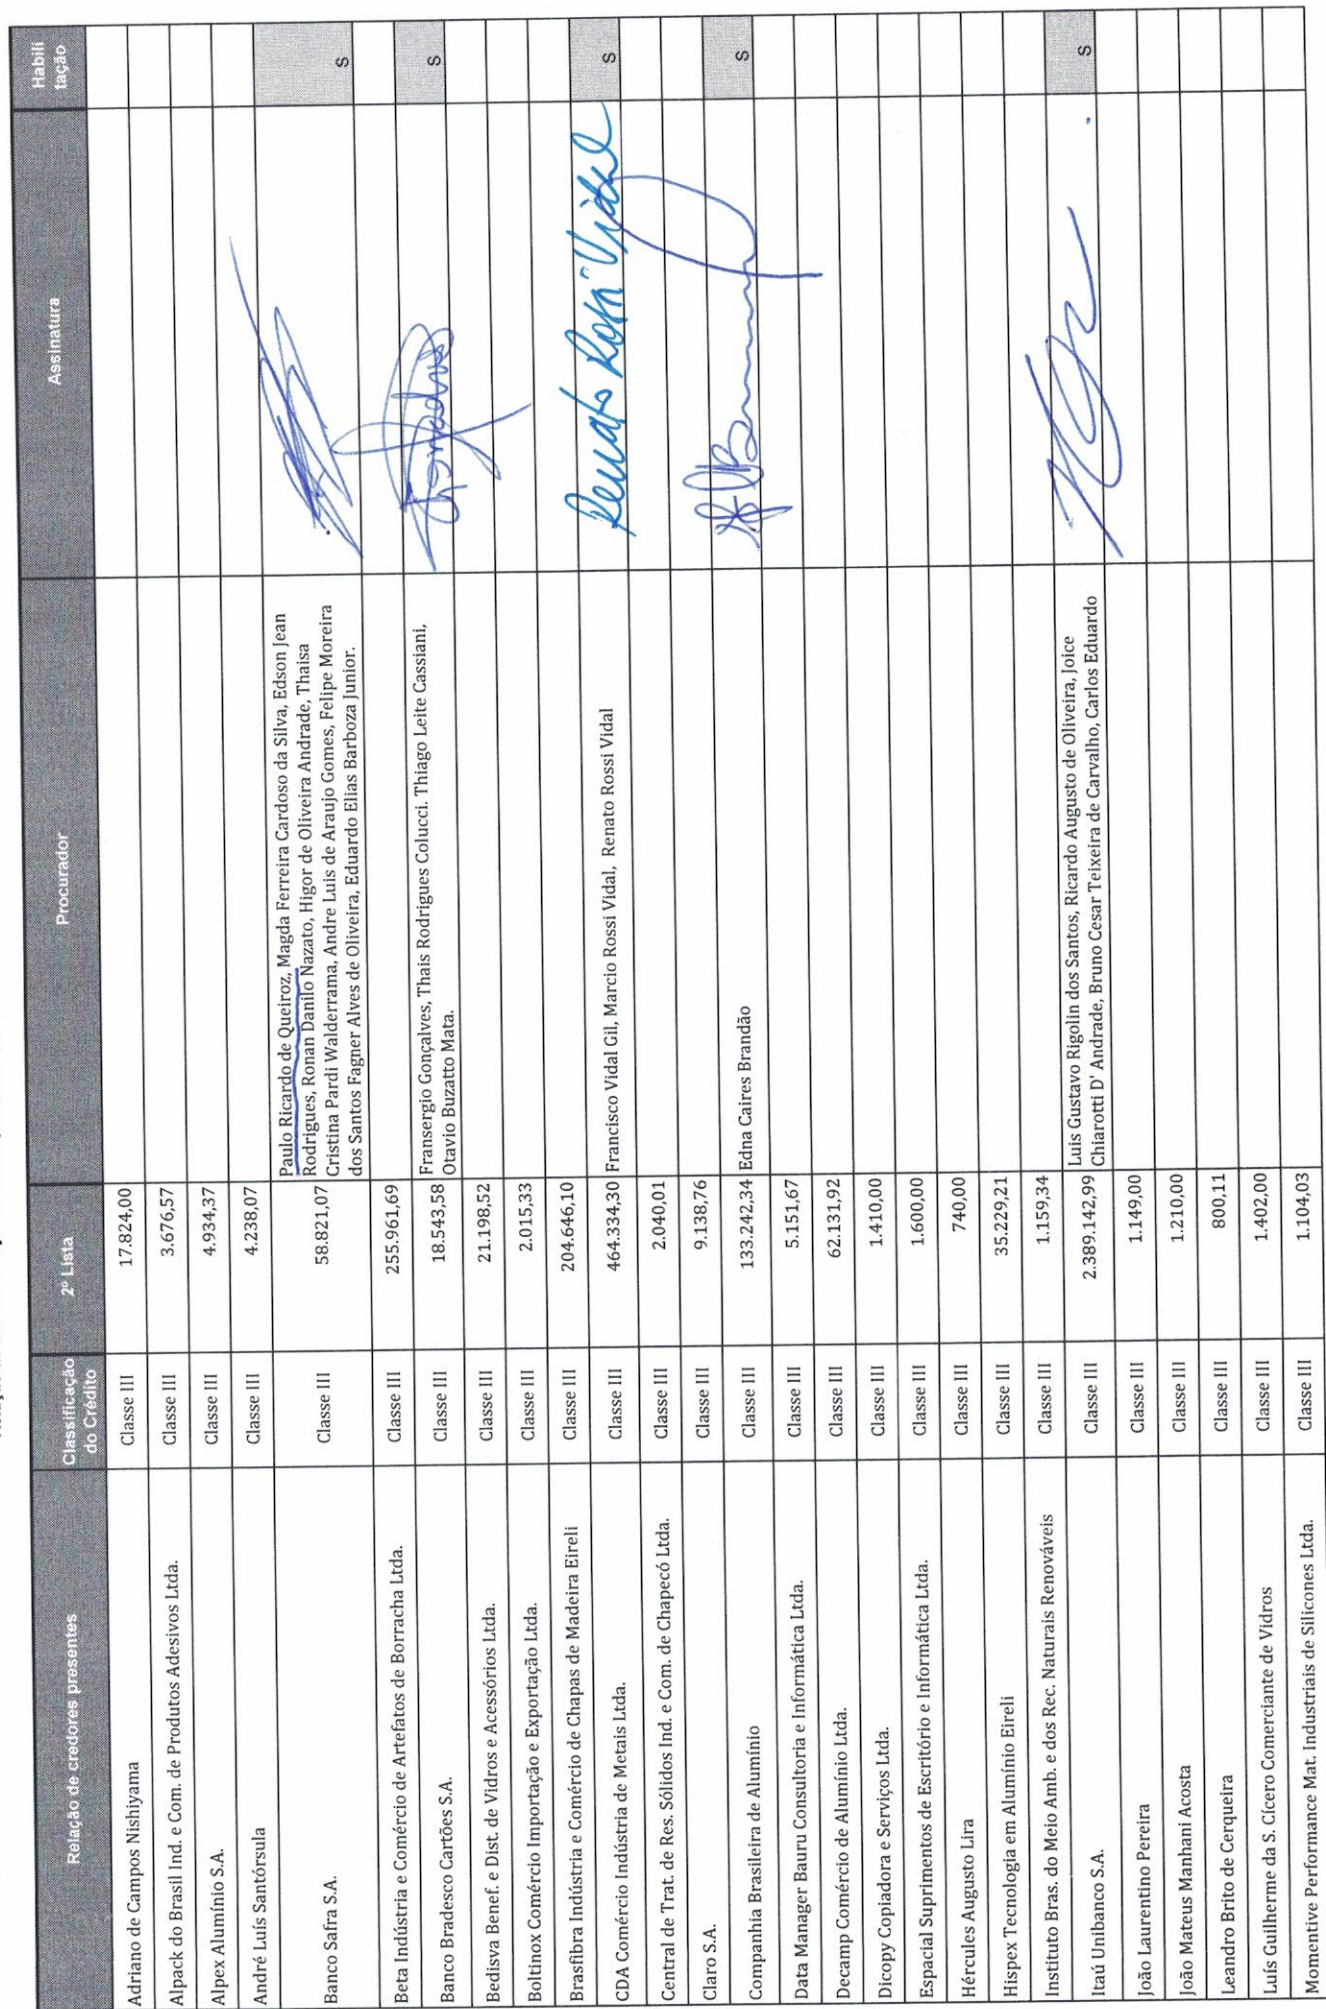 Relação de credores presentes Classificação do Crédito 2º Lista Procurador Assinatura Habili tação
Adriano de Campos Nishiyama Classe III 17.824,00
Alpack do Brasil Ind. e Com. de Produtos Adesivos Ltda. Classe III 3.676,57
Alpex Alumínio S.A. Classe III 4.934,37
André Luís Santórsula Classe III 4.238,07
Banco Safra S.A. Classe III 58.821,07 Paulo Ricardo de Queiroz, Magda Ferreira Cardoso da Silva, Edson Jean
Rodrigues, Ronan Danilo Nazato, Higor de Oliveira Andrade, Thaisa
Cristina Pardi Walderrama, Andre Luis de Araujo Gomes, Felipe Moreira
dos Santos Fagner Alves de Oliveira, Eduardo Elias Barboza Junior. S
Beta Indústria e Comércio de Artefatos de Borracha Ltda. Classe III 255.961,69
Banco Bradesco Cartões S.A. Classe III 18.543,58 Fransergio Gonçalves, Thais Rodrigues Colucci. Thiago Leite Cassiani,
Otavio Buzatto Mata. S
Bedisva Benef. e Dist. de Vidros e Acessórios Ltda. Classe III 21.198,52
Boltinox Comércio Importação e Exportação Ltda. Classe III 2.015,33
Brasfibra Indústria e Comércio de Chapas de Madeira Eireli Classe III 204.646,10
CDA Comércio Indústria de Metais Ltda. Classe III 464.334,30 Francisco Vidal Gil, Marcio Rossi Vidal, Renato Rossi Vidal Renato Rossi Vidal S
Central de Trat. de Res. Sólidos Ind. e Com. de Chapecó Ltda. Classe III 2.040,01
Claro S.A. Classe III 9.138,76
Companhia Brasileira de Alumínio Classe III 133.242,34 Edna Caires Brandão S
Data Manager Bauru Consultoria e Informática Ltda. Classe III 5.151,67
Decamp Comércio de Alumínio Ltda. Classe III 62.131,92
Dicopy Copiadora e Serviços Ltda. Classe III 1.410,00
Espacial Suprimentos de Escritório e Informática Ltda. Classe III 1.600,00
Hércules Augusto Lira Classe III 740,00
Hispex Tecnologia em Alumínio Eireli Classe III 35.229,21
Instituto Bras. do Meio Amb. e dos Rec. Naturais Renováveis Classe III 1.159,34
Itaú Unibanco S.A. Classe III 2.389.142,99 Luis Gustavo Rigolin dos Santos, Ricardo Augusto de Oliveira, Joice
Chiarotti D' Andrade, Bruno Cesar Teixeira de Carvalho, Carlos Eduardo S
João Laurentino Pereira Classe III 1.149,00
João Mateus Manhani Acosta Classe III 1.210,00
Leandro Brito de Cerqueira Classe III 800,11
Luís Guilherme da S. Cícero Comerciante de Vidros Classe III 1.402,00
Momentive Performance Mat. Industriais de Silicones Ltda. Classe III 1.104,03